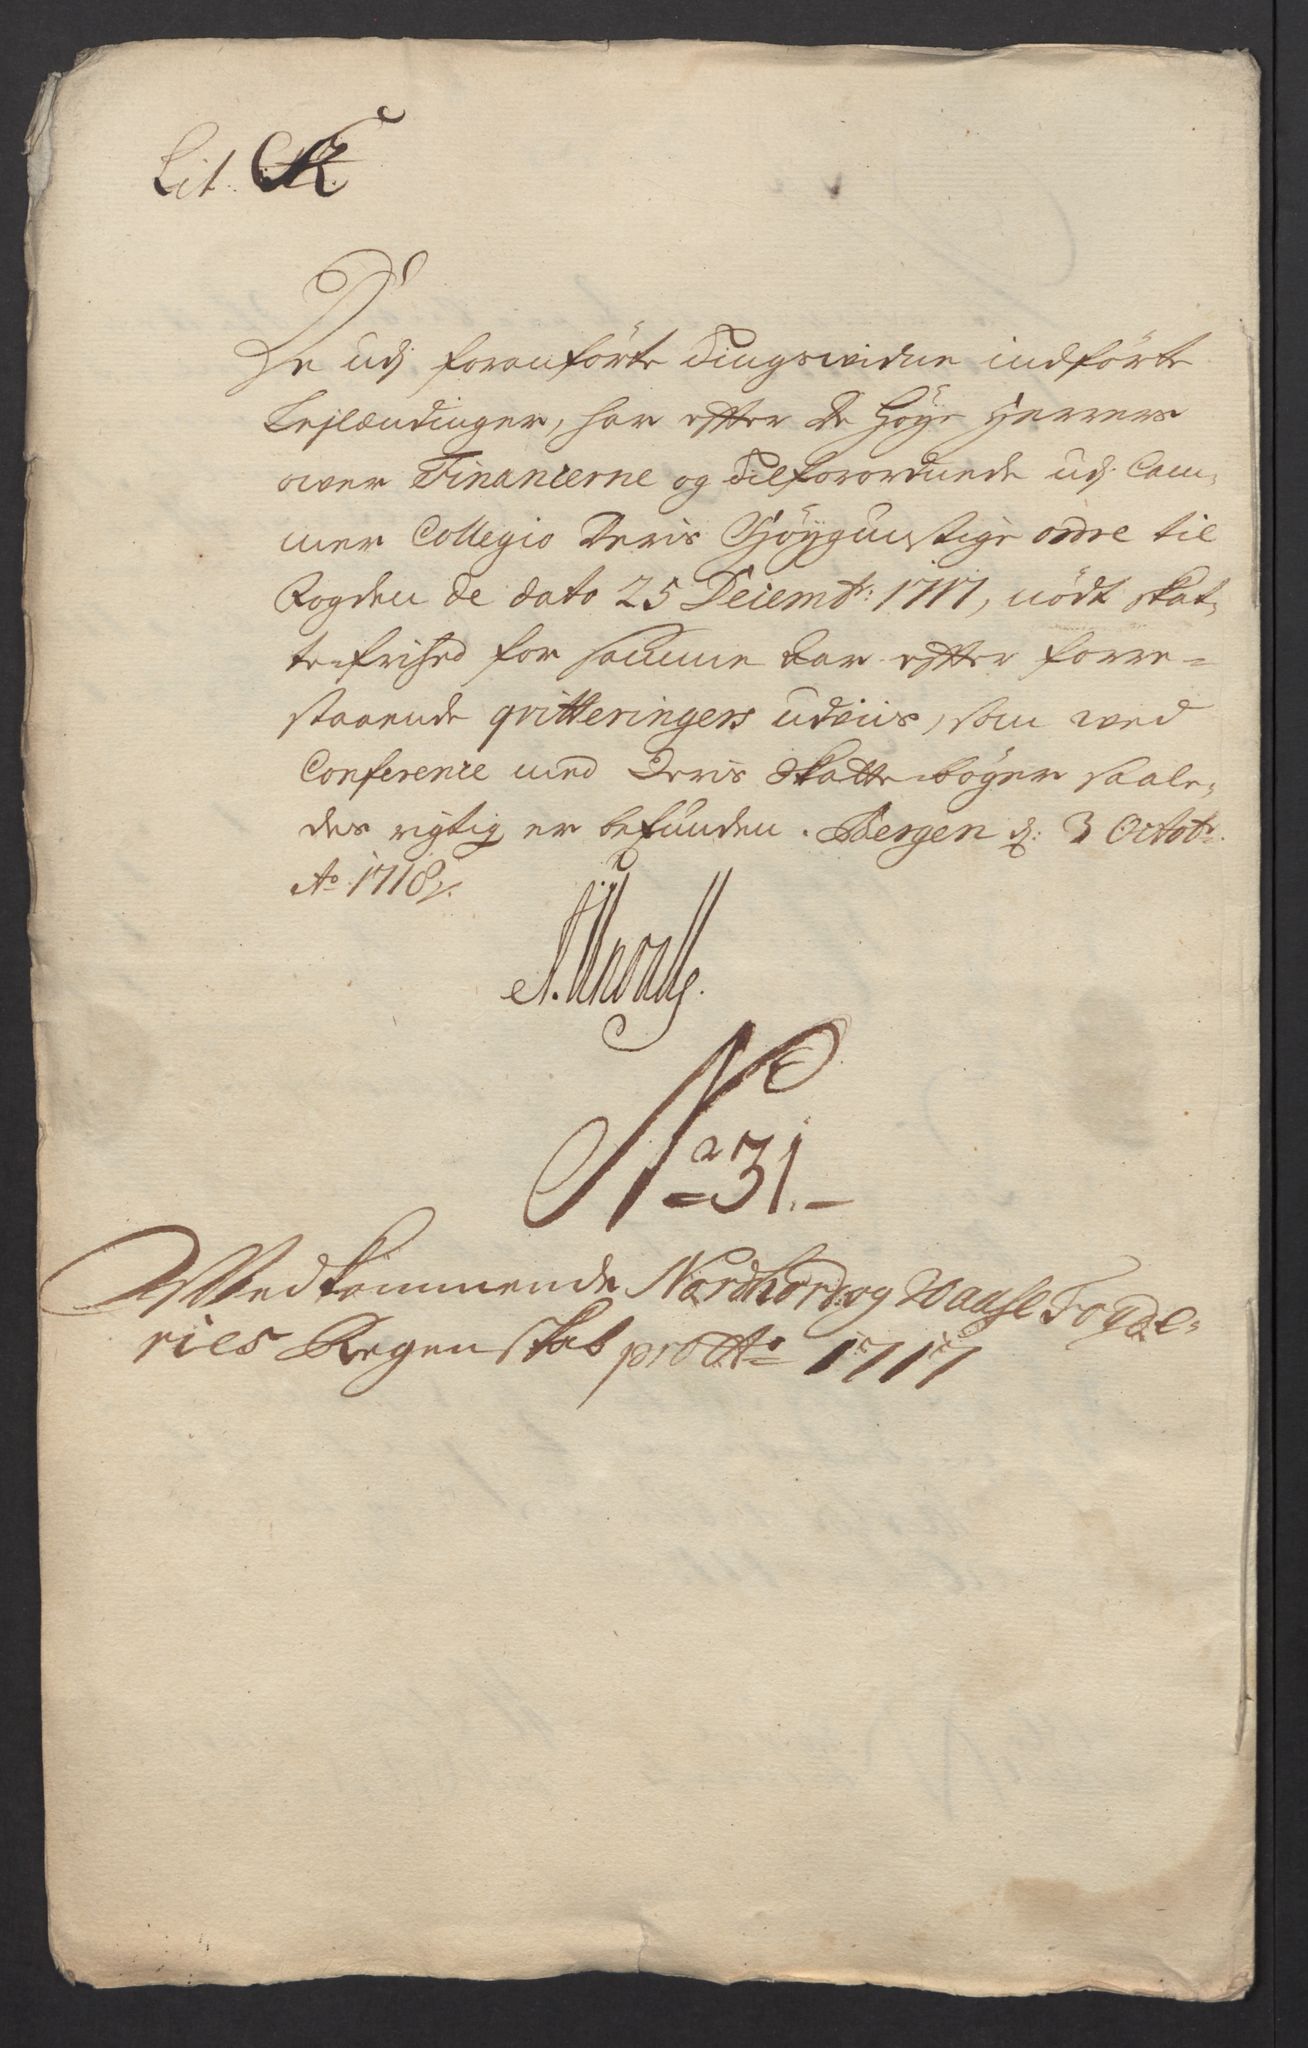 Lit. K
De udj foranförte Tingsvidne indförte
Lejlændinger, har effter De Höye Herrers
over Financerne og Tilforordnede udj Cam,
mer Collegio Deris Höygunstige ordre til
Fogden de dato 25 Decembr: 1717, nödt skat,
tefrihed for samme aar effter forre-
staaende qvitteringers udviis, som ved
Conference med Deris Skattebøger saale,
des rigtig er befunden. Bergen d: 3 Octobr.
Ao 1718.
No 31.
Vedkommende Nordhord: og Waasse Fogde-
ries Regenskab pro Ao 1717